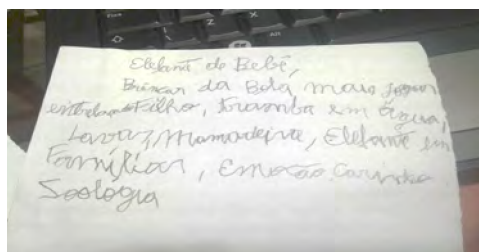 Elefant de Bebê,
Brincar da Bola mais
Filho, tromba em água,
Lavar, Mamadeira, Elefante em
Famíliar, Emoção Carinho
Soologia